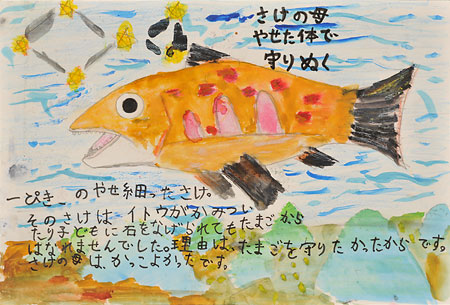 さけの母
やせた体で
守りぬく
一ぴきのやせ細ったさけ。
そのさけは、イトウがかみつい
たり子どもに石をなげられてもたまごから
はなれませんでした。理由は、たまごを守りたかったからです。
さけの母は、かっこよかったです。